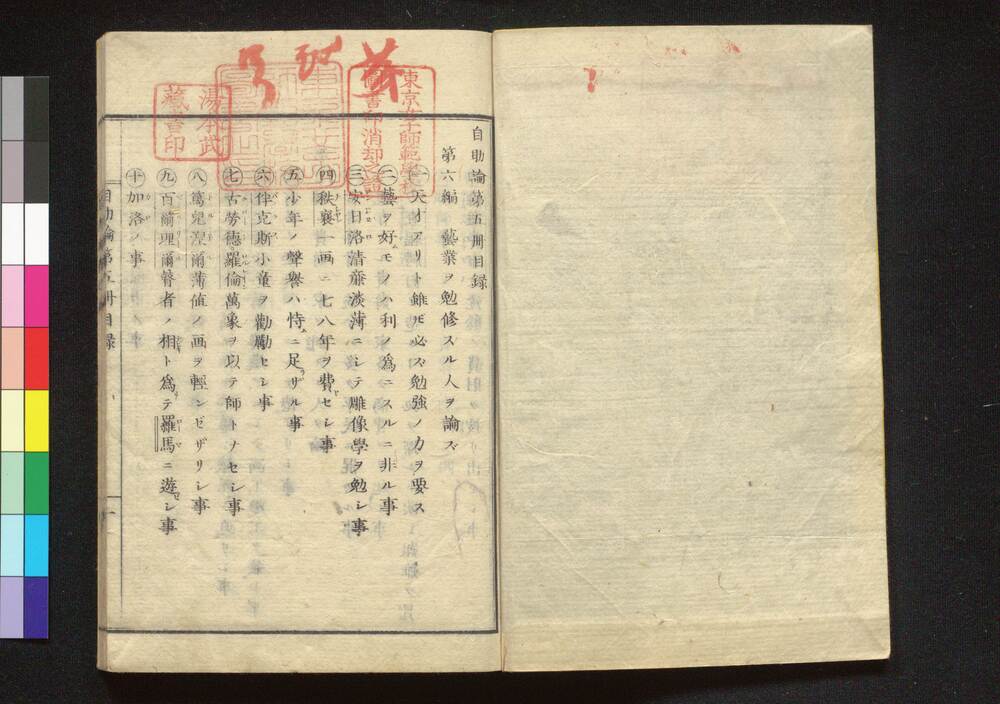 自助論第五冊目録
第六編 藝業ヲ勉修スル人ヲ論ズ
㊀天才アリト雖𪜈必ズ勉強ノ力ヲ要ス
㊁藝ヲ好モノハ利ノ為ニスルニ非ル事
㊂安日洛清廉淡薄ニシテ雕像學ヲ勉シ事
㊃秩襄一画ニ七八年ヲ費セシ事
㊄少年ノ聲譽ハ恃ニ足ザル事
㊅俾克斯小童ヲ勸勵セシ事
㊆古勞德羅倫萬象ヲ以テ師トナセシ事
㊇ノ画ヲ輕ンゼザリシ事
㊈百爾理爾瞽者ノ相ト為テ羅馬ニ遊シ事
㊉加洛ノ事
自助論第五冊目録
一
東京女子師範學校
圖書印消却之證
湯本武
藏書印